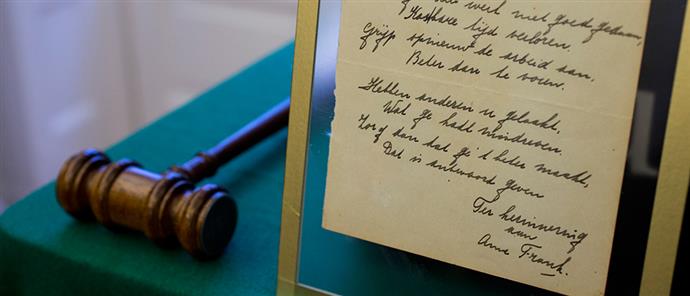 werk niet goed gedaan,
Kostbare tijd verloren,
Grijp opnieuw de arbeid aan,
Beter dan te voren.
Hebben anderen u gelaakt,
Wat ge hadt misdreven.
Zorg dan dat ge 't beter maakt,
Dat is antwoord geven
Ter herinnering
aan
Anne Frank.